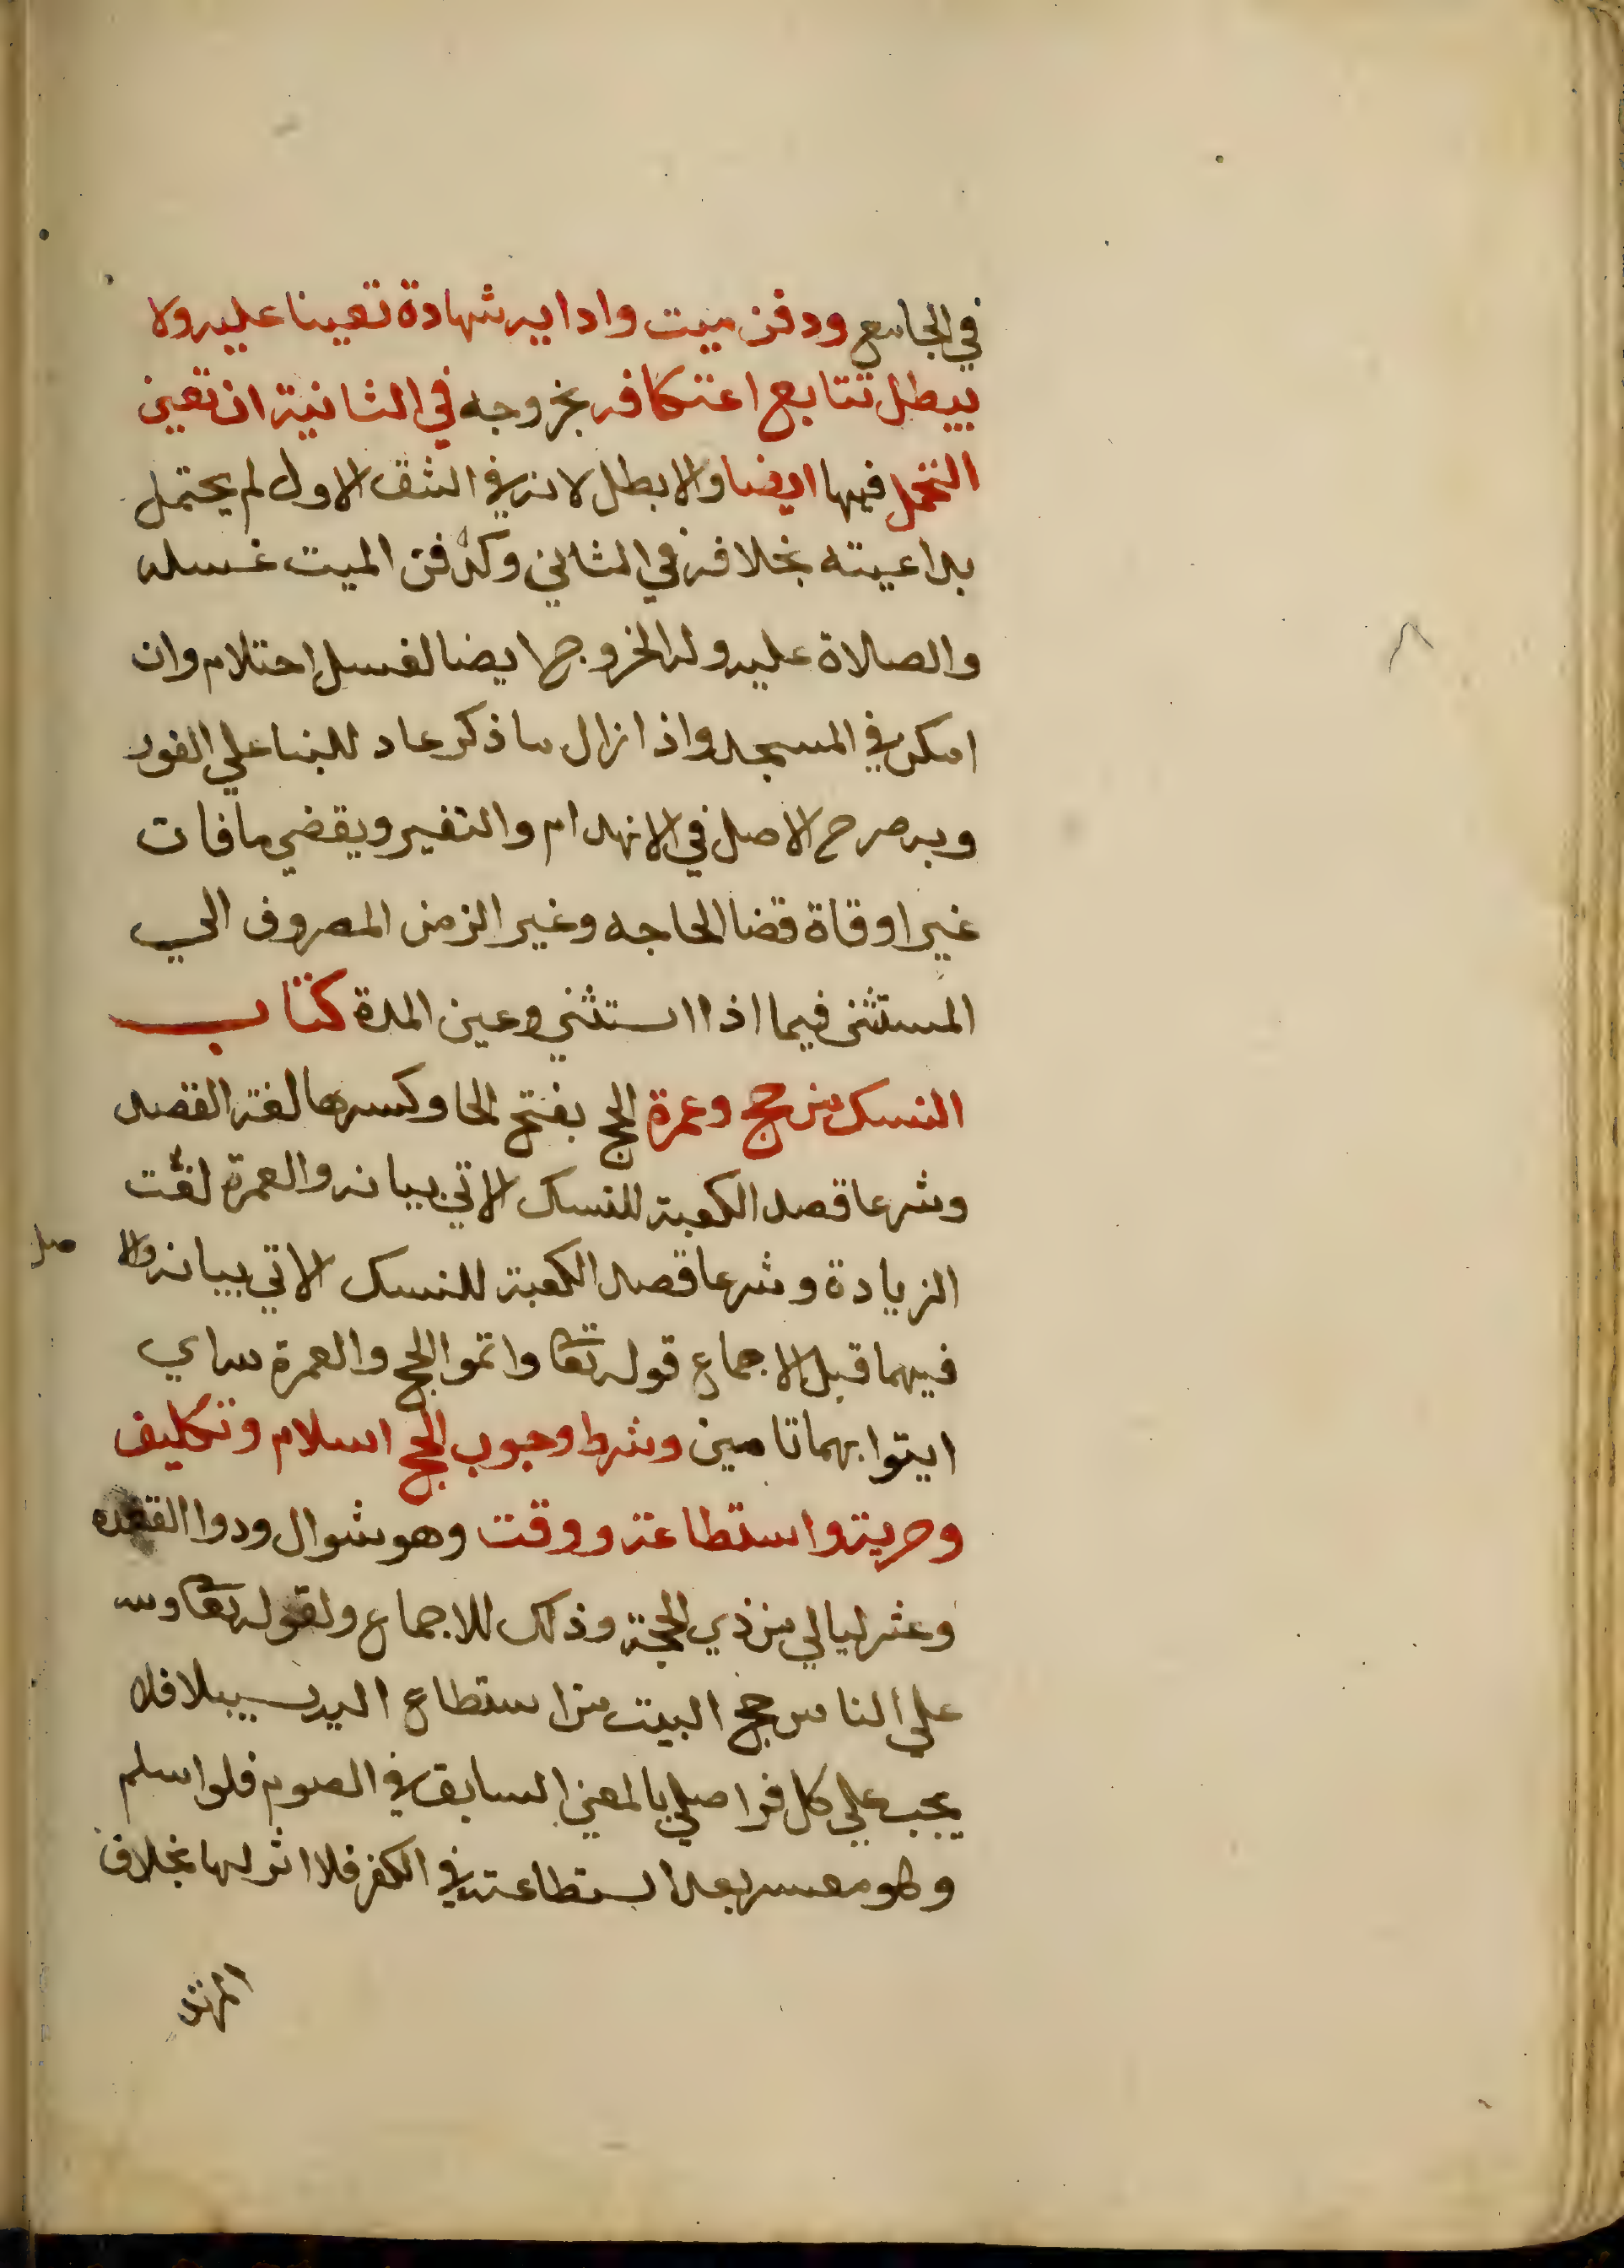 في الجامع ودفن ميت وادايه شهادة تعينا عليه ولا
يبطل تتابع اعتكافه بخروجه في الثانية ان تعين
التحمل فيها ايضا والا بطل لانه في الشق الاول لم يحتمل
بداعيته بخلافه في الثاني وكدفن الميت غسله
والصلاة عليه وله الخروج ايضا لغسل احتلام وان
امكن في المسجد واذا زال ما ذكر عاد للبنا علي الفور
وبه صرح الاصل في الانهدام والتغير ويقضي ما فات
غير اوقاة قضا الحاجه وغير الزمن المصروف الي
المستثنى فيما اذا استثني وعين المدة كتاب
النسك من حج وعمرة الحج بفتح الحا وكسرها لغة القصد
وشرعا قصد الكعبة للنسك الاتي بيانه والعمرة لغت
الزيادة وشرعا قصد الكعبة للنسك الاتي بيانه والا صل
فيهما قبل الاجماع قوله تعا واتموا الحج والعمرة لله اي
ايتوا بهما تامين وشرط وجوب الحج اسلام وتكليف
وحرية واستطاعة ووقت وهو شوال ودوا القعده
وعشر ليالي من ذي الحجة وذلك للاجماع ولقوله تعا ولله
علي الناس حج البيت من استطاع اليه سبيلا فلا
يجب علي كافر اصلي بالمعني السابق في الصوم فلو اسلم
وهو معسر بعد استطاعته في الكفر فلا اثر لها بخلاف
المرتد